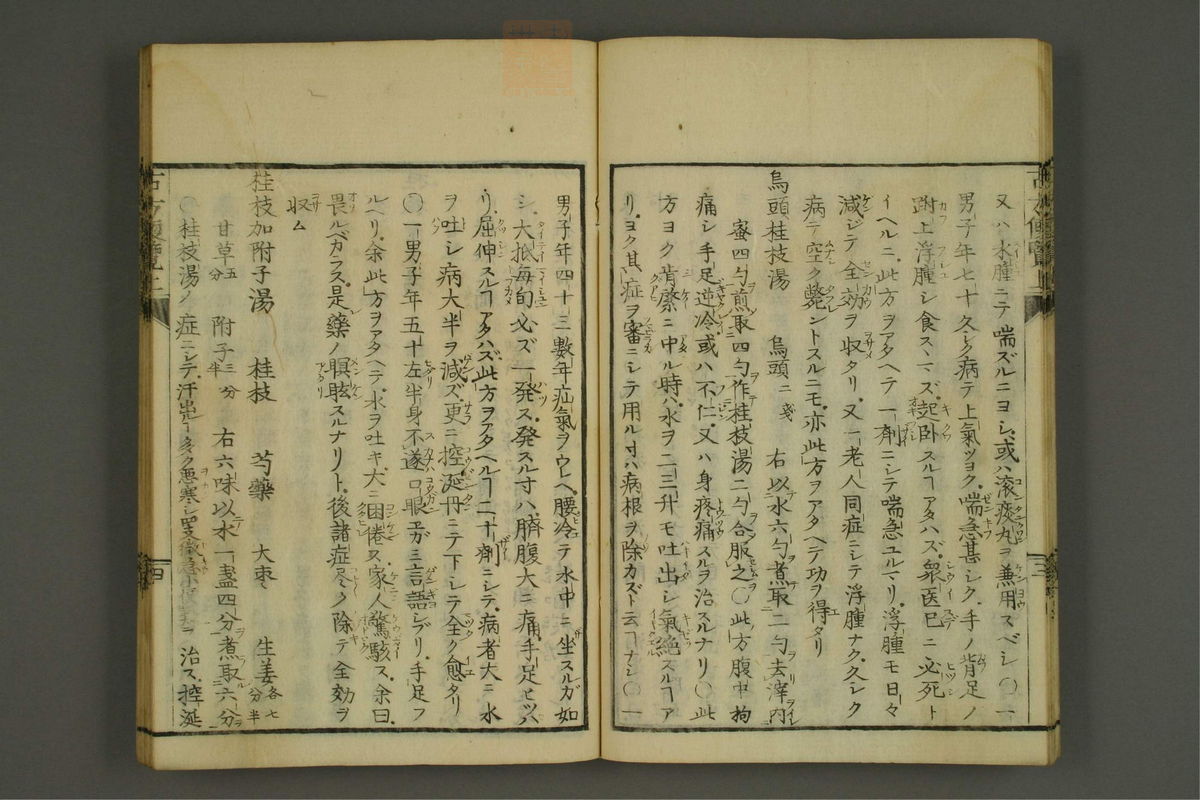 又ハ水腫ニテ喘ズルニヨシ、或ハ滚痰丸ヲ兼用スベシ〇一
男子年七十久シク病テ上氣ツヨク、喘急甚シク、手ノ背足ノ
跗上浮腫シ食スヽマズ、起臥スルヿアタハズ、衆医已ニ必死ト
イヘルニ、此方ヲアタヘテ一劑ニシテ喘急ユルマリ、浮腫モ日々
減シテ全効ヲ収タリ、又一老人同症ニシテ浮腫ナク、久シク
病テ空ク斃ントスルニモ、亦此方ヲアタヘテ功ヲ得タリ
烏頭桂枝湯 烏頭二戔 右以水六勺煮取二勺去滓内
蜜四勺煎取四勺作桂枝湯二勺合服之〇此方腹中拘
痛シ手足逆冷或ハ不仁、又ハ身疼痛スルヲ治スルナリ〇此
方ヨク肯綮ニ中ル時ハ、水ヲ二三升モ吐出シ氣絶スルヿア
リ、ヨク其症ヲ審ニシテ用ル寸ハ病根ヲ除カズト云ヿナシ〇一
三
男子年四十三數年疝氣ヲウレヘ、腰冷テ水中ニ坐スルガ如
シ、大抵毎旬必ズ一発ス、発スル寸ハ、臍腹大ニ痛、手足ヒツハ
リ、屈伸スルヿアタハズ、此方ヲアタヘルヿ二十劑ニシテ、病者大ニ水
ヲ吐シ病大半ヲ減ズ、更ニ控涎丹ニテ下シテ全ク愈タリ
〇一男子年五十左半身不遂口眼ユガミ言語シブリ、手足フ
ルヘリ、余此方ヲアタヘテ、水ヲ吐キ、大ニ困倦ス、家人驚駭ス、余曰、
畏ルベカラス、是藥ノ瞑眩スルナリト、後諸症尽ク除テ全効ヲ
収ム
桂枝加附子湯 桂枝 芍藥 大枣 生姜各七分半
甘草五分 附子三分半 右六味以水一盞四分煮取六分
〇桂枝湯ノ症ニシテ、汗出ルヿ多ク悪寒シ 治ス、控涎
四